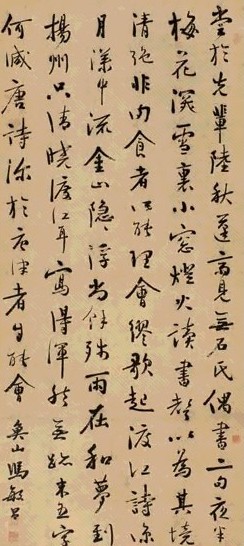 嘗於先輩陸秋蓬齋見無名氏偶書二句夜半
梅花深雪裏小窗燈火讀書聲以為其境
清絕非肉食者所能理會繆歌起渡江詩涼
月漾中流金山隱隱浮尚餘殘雨在和夢到
揚州只清曉渡江耳寫得渾然無跡末五字
何減唐詩深於唐律者自能會 奐山馮敏昌